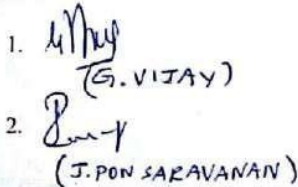 1.
(G. VIJAY)
2.
(J. PON SARAVANAN)